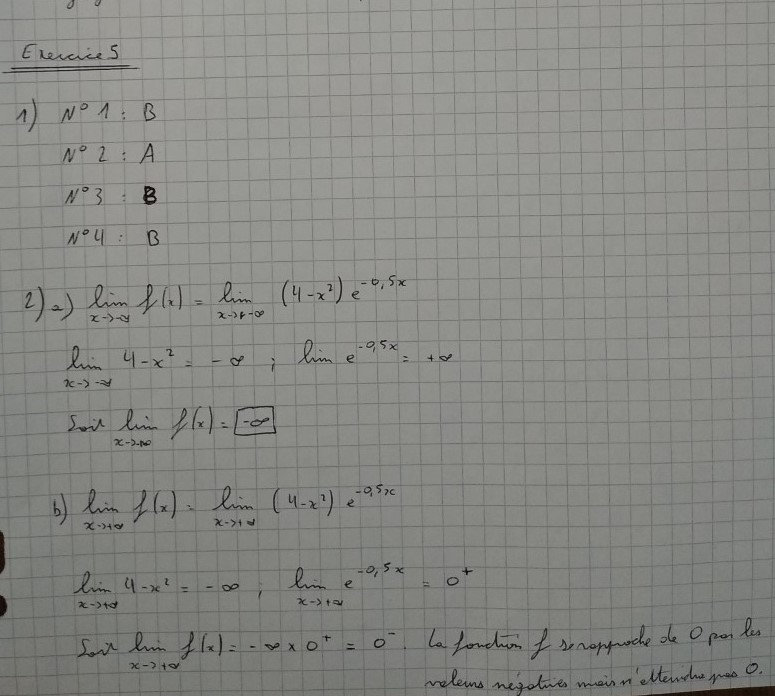 Exercice 5
1) N° 1 : B
N° 2 : A
N° 3 : B
N° 4 : B
2) a) lim x->-∞ f(x) = lim x->-∞ (4-x²) e^-0,5x
lim x->-∞ 4-x² = -∞ ; lim e^-0,5x = +∞
Soit lim x->-∞ f(x) = -∞
b) lim x->+∞ f(x) = lim x->+∞ (4-x²) e^-0,5x
lim x->+∞ 4-x² = -∞ ; lim x->+∞ e^-0,5x = 0⁺
Soit lim x->+∞ f(x) = -∞ × 0⁺ = 0⁻. La fonction f se rapproche de 0 par les
valeurs négatives mais n'atteindra pas 0.